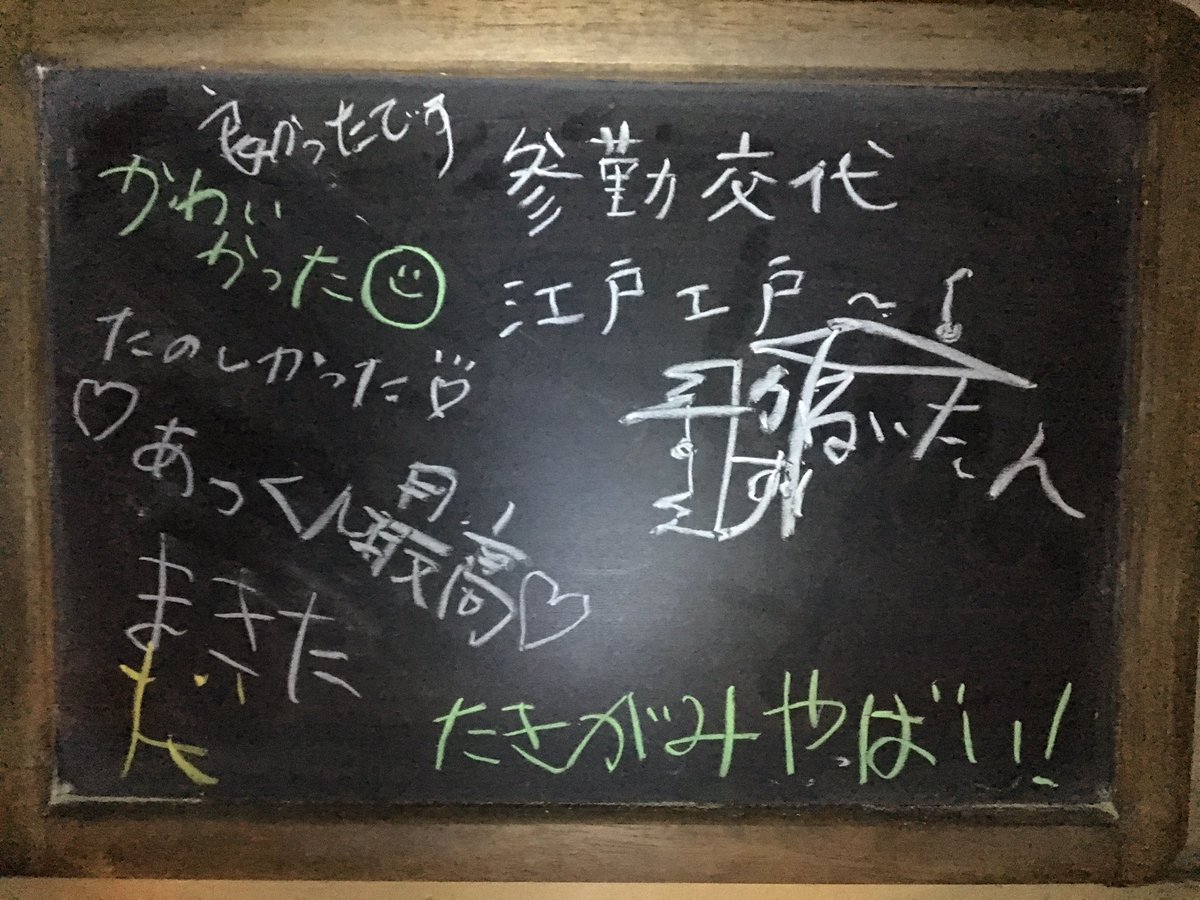 良かったです
かわい
かった
たのしかった
あっくん最高
まさた
参勤交代
江戸江戸~
たきがみやばい!